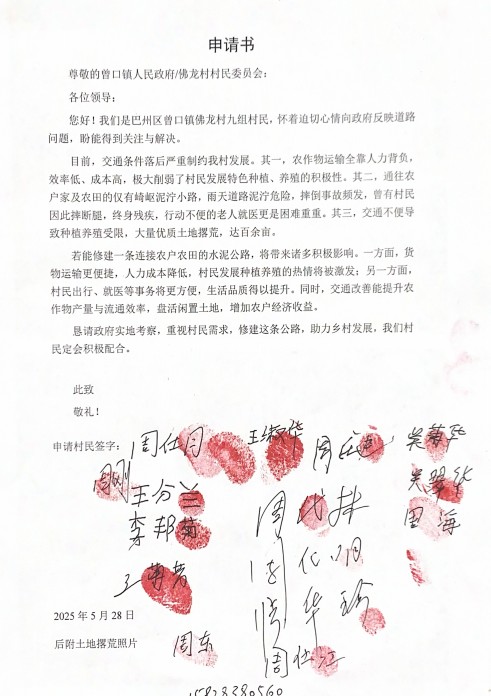 申请书
尊敬的曾口镇人民政府/佛龙村村民委员会：
各位领导：
您好！我们是巴州区曾口镇佛龙村九组村民，怀着迫切心情向政府反映道路
问题，盼能得到关注与解决。
目前，交通条件落后严重制约我村发展。其一，农作物运输全靠人力背负，
效率低、成本高，极大削弱了村民发展特色种植、养殖的积极性。其二，通往农
户家及农田的仅有崎岖泥泞小路，雨天道路泥泞危险，摔倒事故频发，曾有村民
因此摔断腿，终身残疾，行动不便的老人就医更是困难重重。其三，交通不便导
致种植养殖受限，大量优质土地撂荒，达百余亩。
若能修建一条连接农户农田的水泥公路，将带来诸多积极影响。一方面，货
物运输更便捷，人力成本降低，村民发展种植养殖的热情将被激发；另一方面，
村民出行、就医等事务将更方便，生活品质得以提升。同时，交通改善能提升农
作物产量与流通效率，盘活闲置土地，增加农户经济收益。
恳请政府实地考察，重视村民需求，修建这条公路，助力乡村发展。我们村
民定会积极配合。
此致
敬礼！
申请村民签字：周仕月 王继华 周 吴菊华
周刚 吴翠华
王分兰 周代林 周海
李邦菊
代明
华
2025 年 5 月 28 日
后附土地撂荒照片 周东 周仕江
15828380560